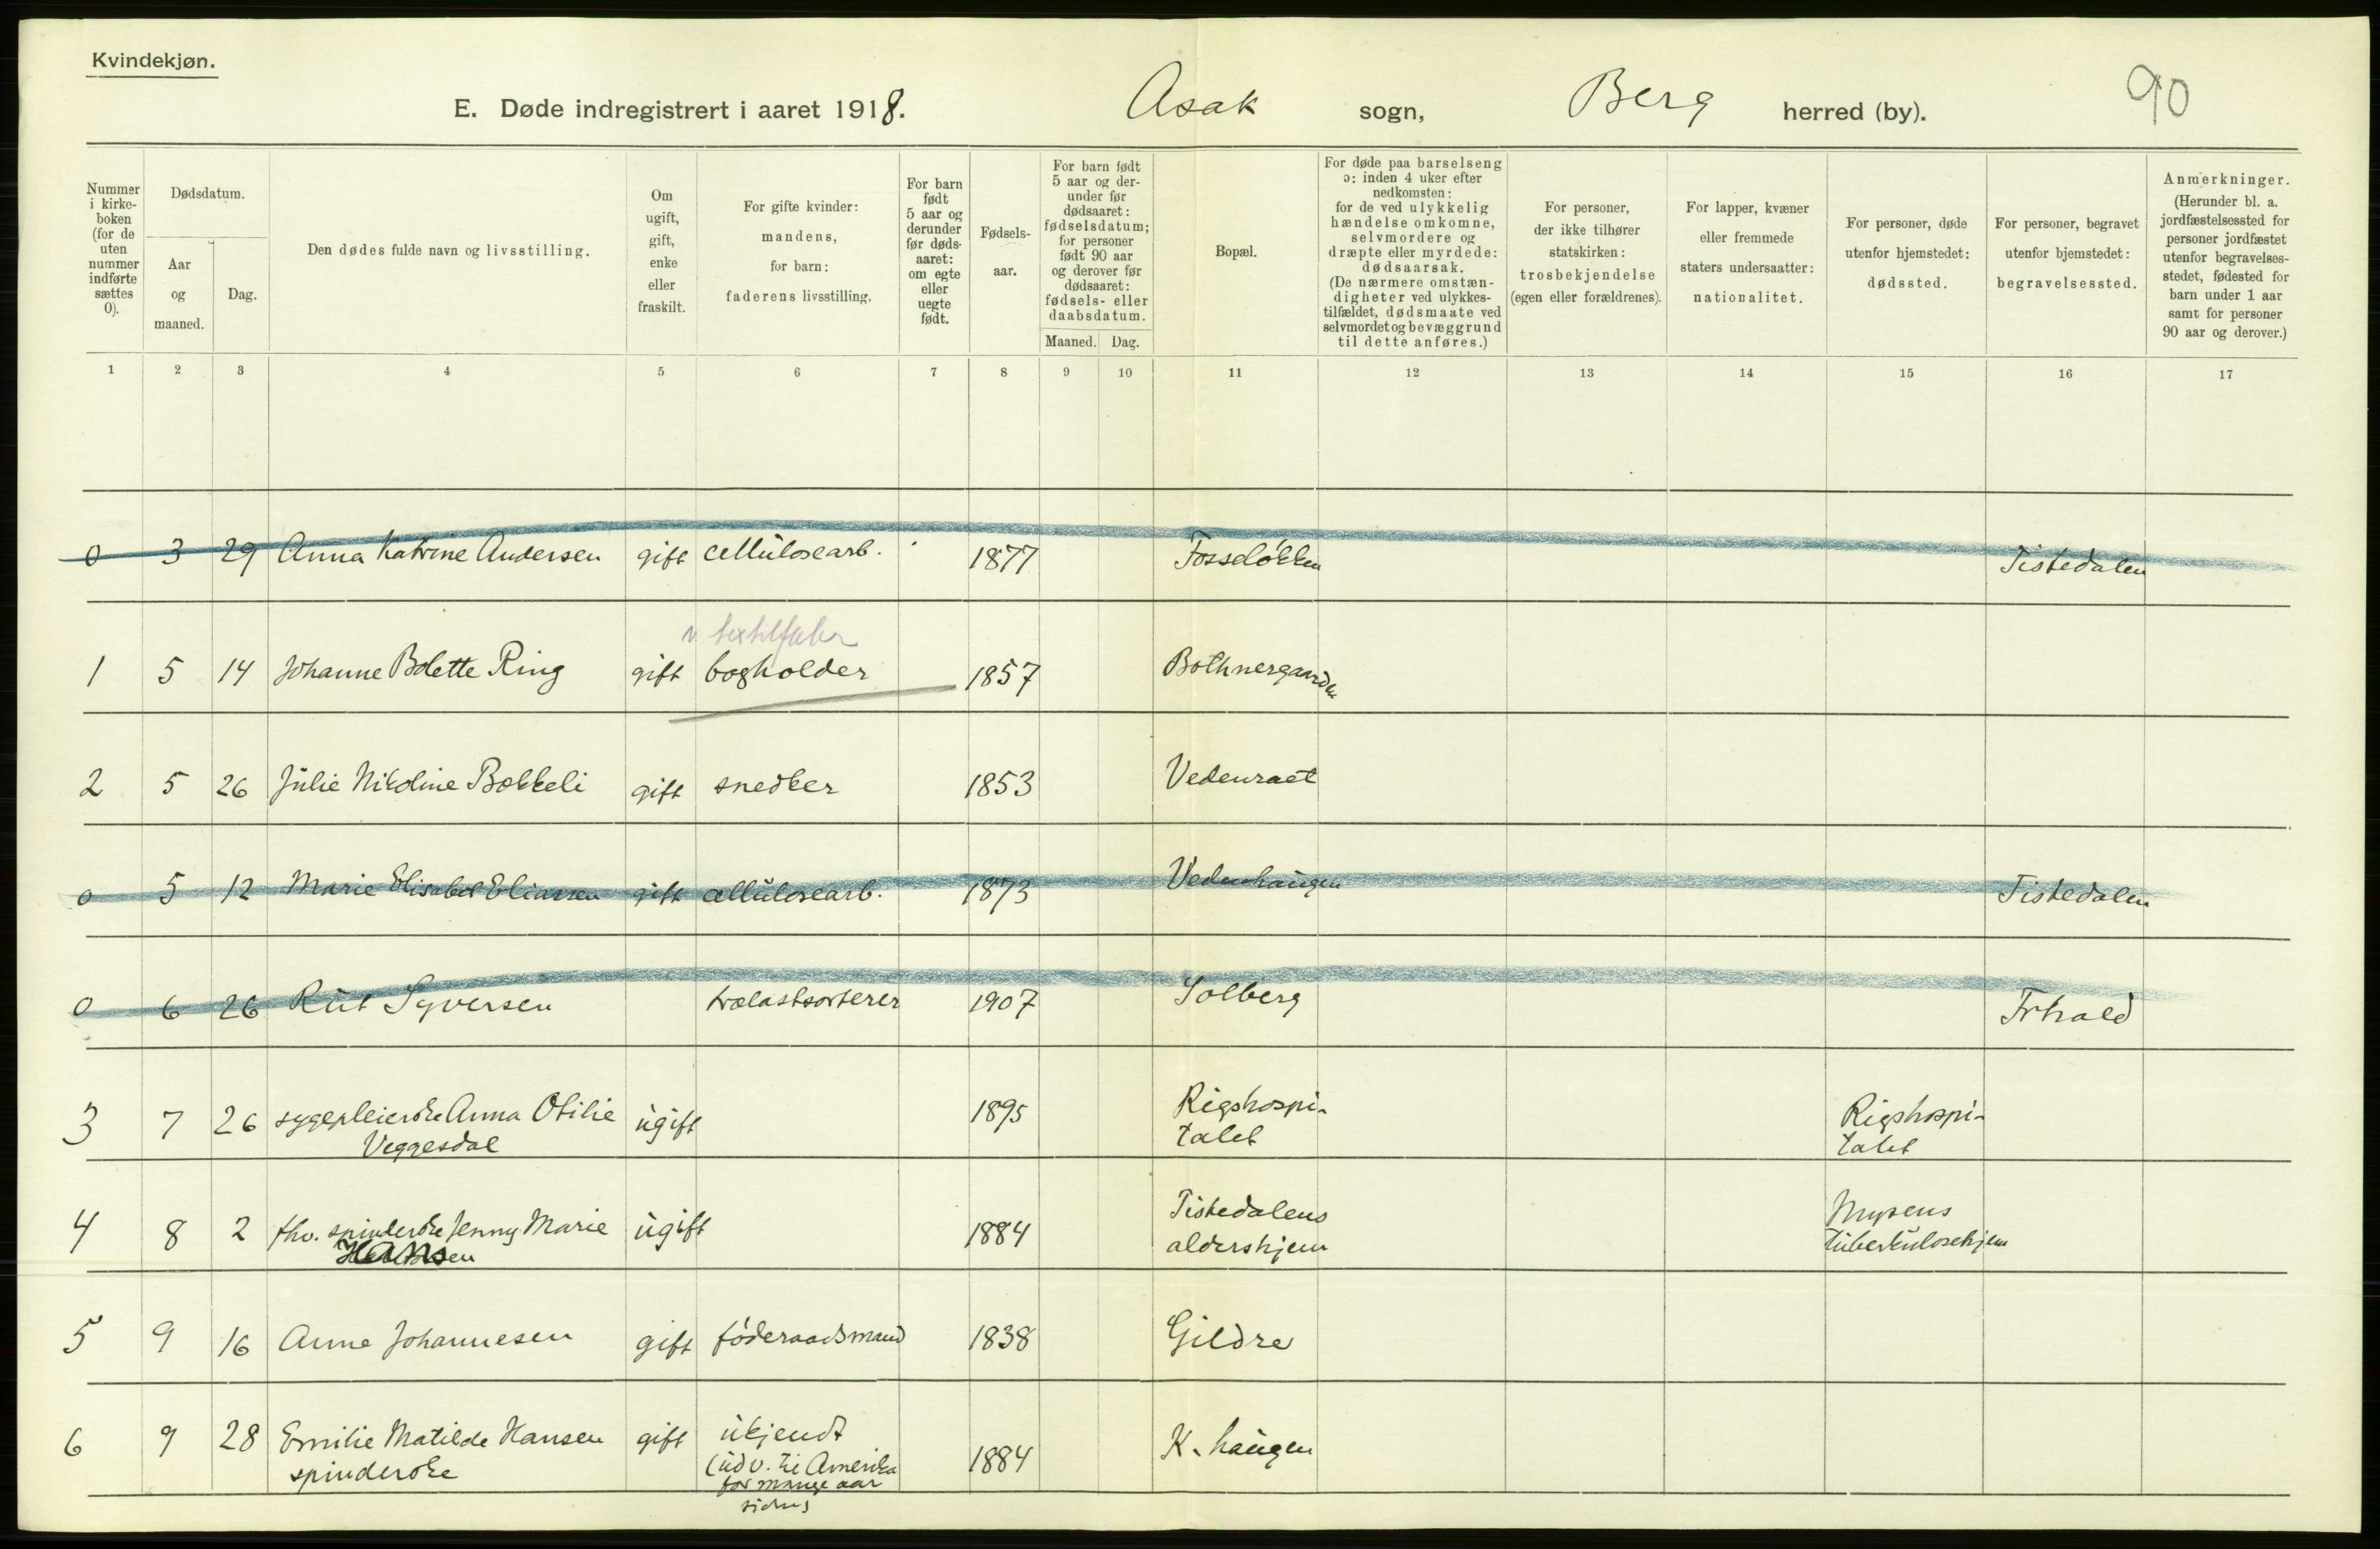 Kvindekjøn.
E. Døde indregistrert i aaret 1918. Asak sogn, Berg herred (by). 90
Nummer i kirke-boken (for de uten nummer indførte sættes 0).
Dødsdatum.
Aar og maaned.
Dag.
Den dødes fulde navn og livsstilling.
Om ugift, gift, enke eller fraskilt.
For gifte kvinder: mandens, for barn: faderens livsstilling.
For barn født 5 aar og derunder før døds-aaret: om egte eller uegte født.
Fødsels-aar.
For barn født 5 aar og der-under før dødsaaret: fødselsdatum; for personer født 90 aar og derover før dødsaaret: fødsels- eller daabsdatum.
Maaned. Dag.
Bopæl.
For døde paa barselseng ɔ: inden 4 uker efter nedkomsten: for de ved ulykkelig hændelse omkomne, selvmordere og dræpte eller myrdede: dødsaarsak. (De nærmere omstæn-digheter ved ulykkes-tilfældet, dødsmaate ved selvmordet og bevæggrund til dette anføres.)
For personer, der ikke tilhører statskirken: trosbekjendelse (egen eller forældrenes).
For lapper, kvæner eller fremmede staters undersaatter: nationalitet.
For personer, døde utenfor hjemstedet: dødssted.
For personer, begravet utenfor hjemstedet: begravelsessted.
Anmerkninger. (Herunder bl. a. jordfæstelsessted for personer jordfæstet utenfor begravelses-stedet, fødested for barn under 1 aar samt for personer 90 aar og derover.)
1 2 3 4 5 6 7 8 9 10 11 12 13 14 15 16 17
0 3 29 Anna Katrine Andersen gift cellulosearb. 1877 Fosseløkken Tistedalen
v. textilfabr
1 5 14 Johanne Bolette Ring gift bogholder 1857 Bothnergaarden
2 5 26 Julie Nikoline Bakkeli gift snedker 1853 Vedenraet
0 5 12 Marie Elisabet Eliassen gift cellulosearb. 1873 Vedenhaugen Tistedalen
0 6 26 Rut Syversen trælastsorterer 1907 Solberg Frhald
3 7 26 sygepleierske Anna Otilie ugift 1895 Rigshospi- Rigshospi-
Veggesdal talet talet
4 8 2 fhv. spinderske Jenny Marie ugift 1884 Tistedalens Mysens
Hansen aldershjem tuberkulosehjem
5 9 16 Anne Johannesen gift føderaadsmand 1838 Gildre
6 9 28 Emilie Matilde Hansen gift ukjendt 1884 K. haugen
spinderske (udv. til Amerika
for mange aar
siden)